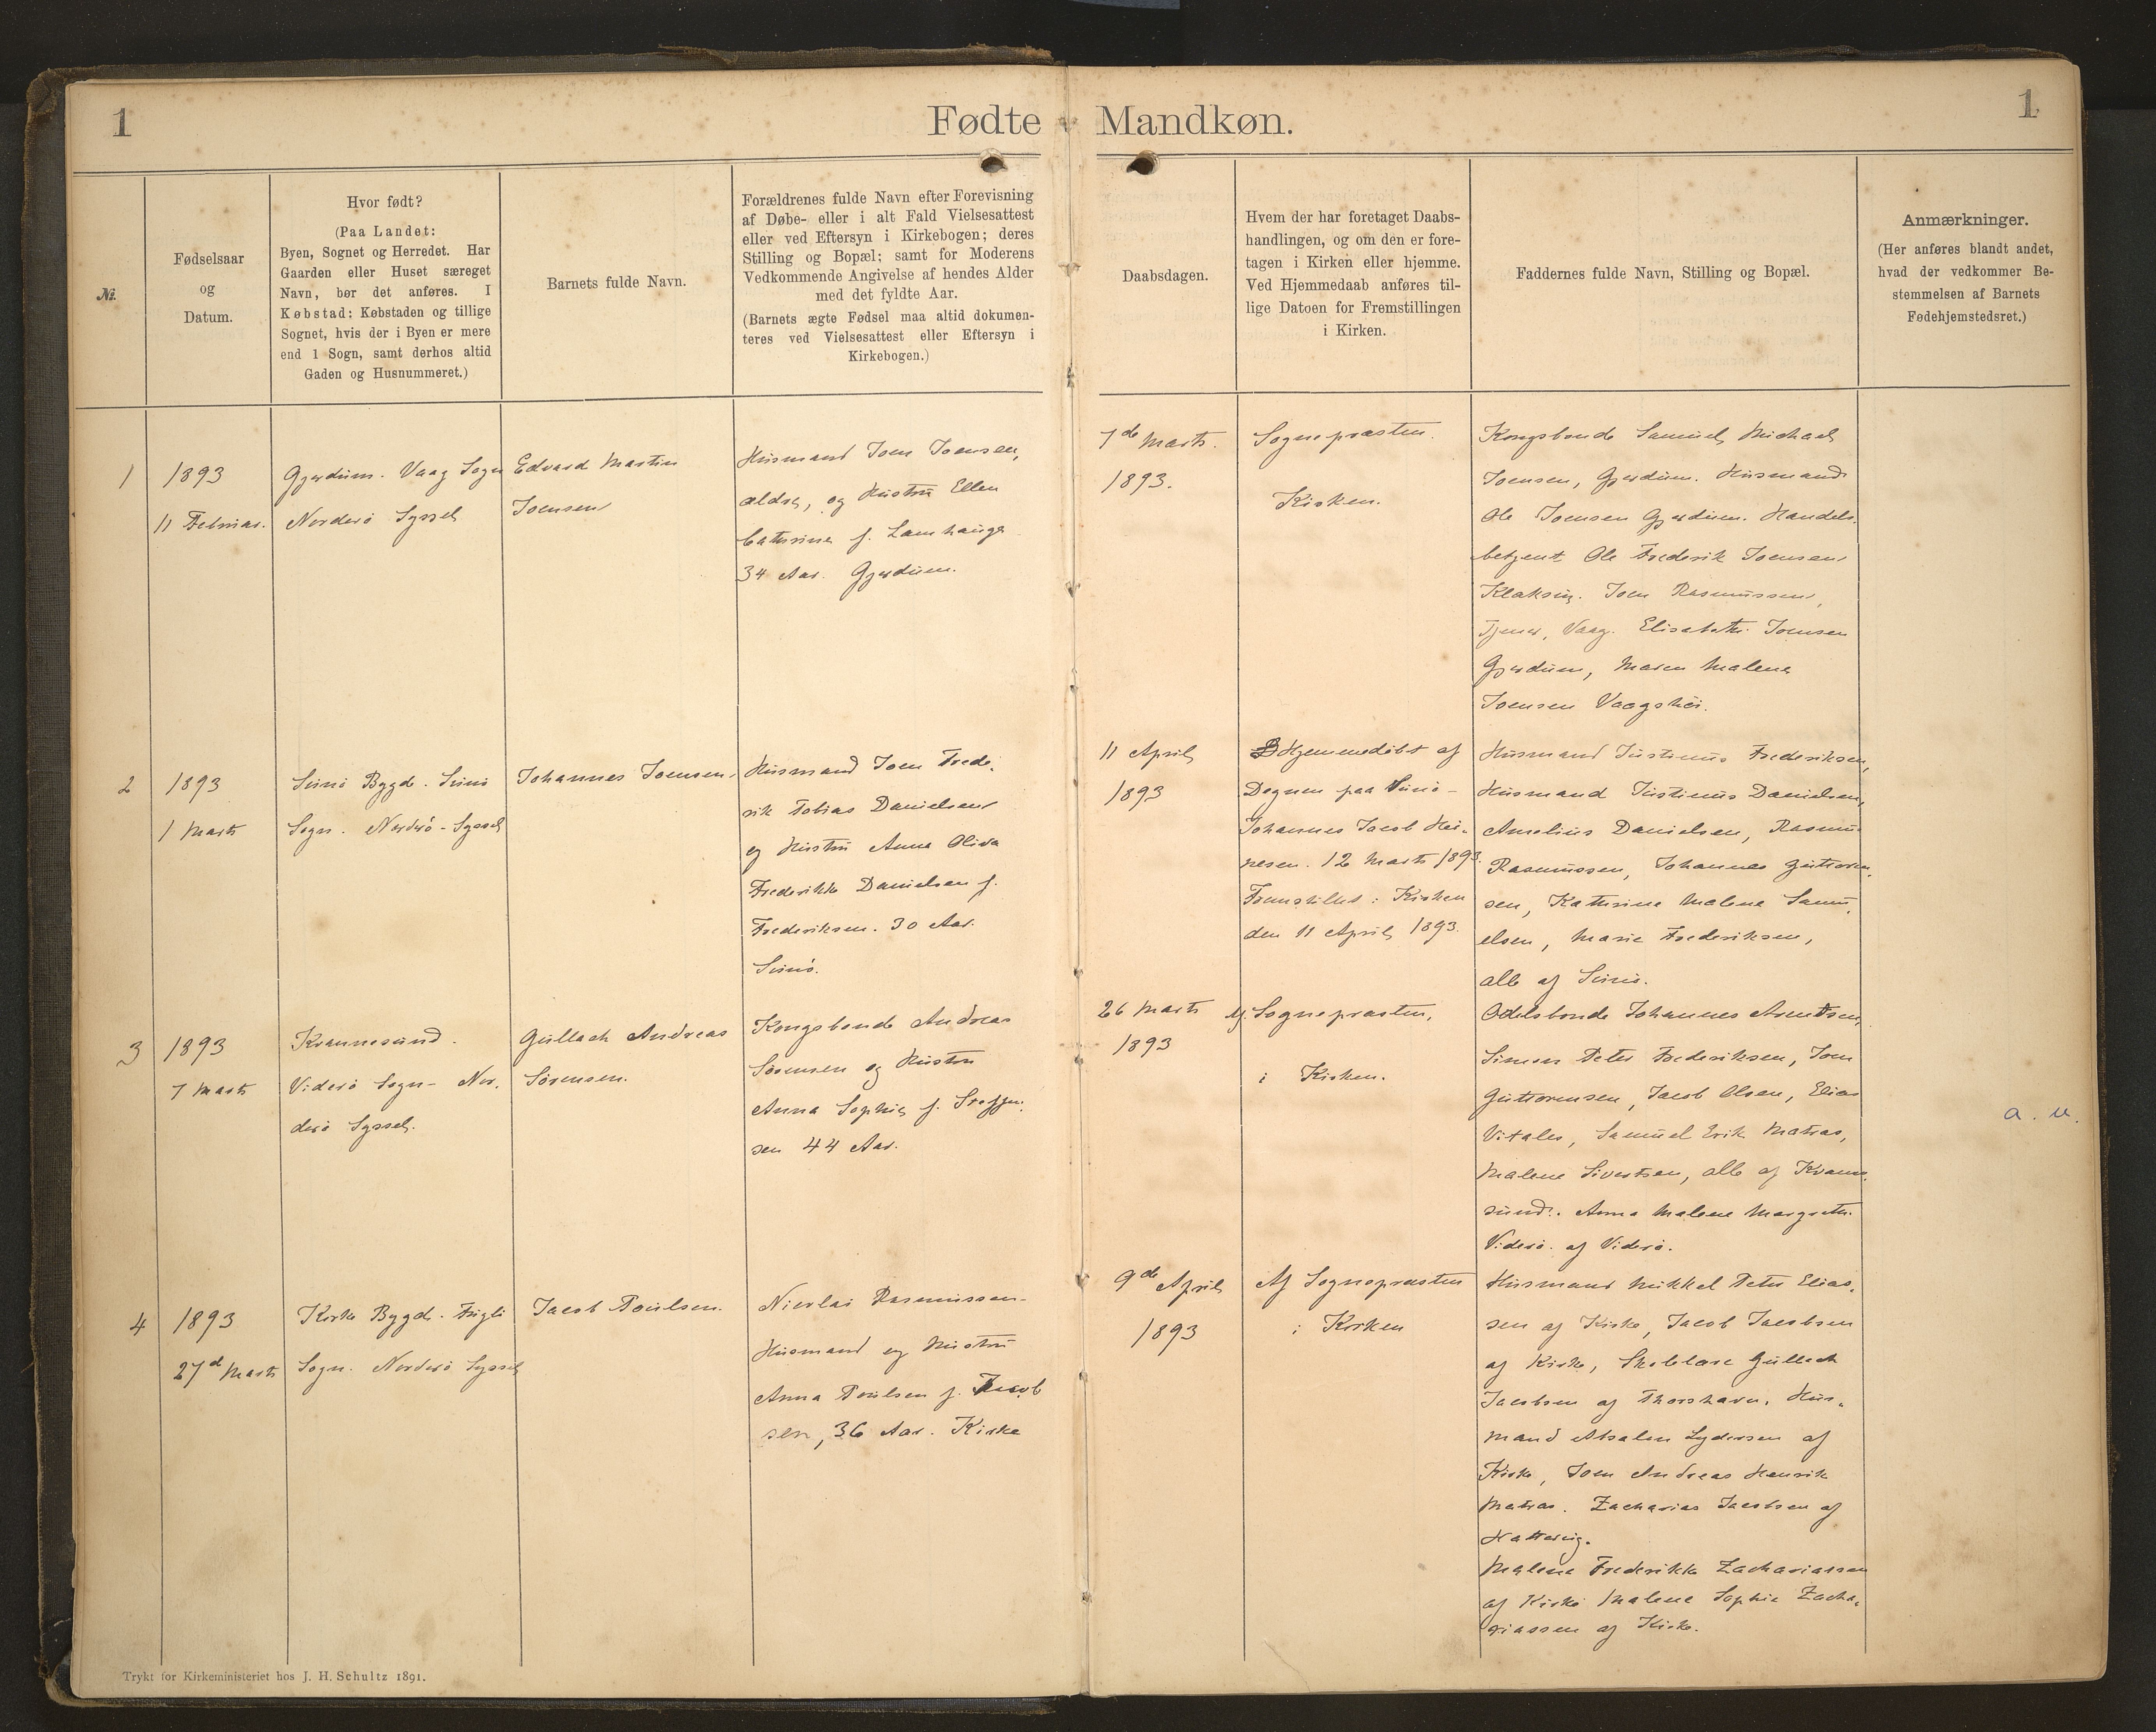 1
Fødte
Mandkøn.
1
№.
Fødselsaar
og
Datum.
Hvor født?
(Paa Landet:
Byen, Sognet og Herredet. Har
Gaarden eller Huset særeget
Navn, bør det anføres. I
Købstad: Købstaden og tillige
Sognet, hvis der i Byen er mere
end 1 Sogn, samt derhos altid
Gaden og Husnummeret.)
Barnets fulde Navn.
Forældrenes fulde Navn efter Forevisning
af Døbe- eller i alt Fald Vielsesattest
eller ved Eftersyn i Kirkebogen; deres
Stilling og Bopæl; samt for Moderens
Vedkommende Angivelse af hendes Alder
med det fyldte Aar.
(Barnets ægte Fødsel maa altid dokumen-
teres ved Vielsesattest eller Eftersyn i
Kirkebogen.)
Daabsdagen.
Hvem der har foretaget Daabs-
handlingen, og om den er fore-
tagen i Kirken eller hjemme.
Ved Hjemmedaab anføres til-
lige Datoen for Fremstillingen
i Kirken.
Faddernes fulde Navn, Stilling og Bopæl.
Anmærkninger.
(Her anføres blandt andet,
hvad der vedkommer Be-
stemmelsen af Barnets
Fødehjemstedsret.)
1
1893
11 Februar.
Gjerdum. Vaag Sogn
Norderø Syssel
Edvard Martin
Joensen
Husmand Joen Joensen,
ældre, og Hustru Ellen
Cathrine f. Lamhauge
34 Aar. Gjerdum.
7de Marts.
1893.
Sognepræsten.
Kirken.
Kongsbonde Samuel Michael
Joensen, Gjerdum. Husmand
Ole Joensen Gjerdum. Handels-
betjent Ole Frederik Joensen
Klaksvig. Joen Rasmussen,
Tjener, Vaag. Elisabeth Joensen
Gjerdum, Maren Malene
Joensen Vaagshøi.
2
1893
1 Marts
Svinø Bygd. Svinø
Sogn. Norderø-Syssel
Johannes Joensen
Husmand Joen Frede-
rik Tobias Danielsen
og Hustru Anna Oliva
Frederikke Danielsen f.
Frederiksen. 30 Aar.
Svinø.
11 April
1893
Hjemmedøbt af
Degnen paa Svinø-
Johannes Jacob Hei-
nesen. 12 Marts 1893.
Fremstillet i Kirken
den 11 April 1893.
Husmand Justinus Frederiksen,
Husmand Justinus Danielsen,
Amelius Danielsen, Rasmus
Rasmussen, Johannes Guttorm-
sen, Kathrine Malene Samu-
elsen, Marie Frederiksen,
alle af Svinø.
3
1893
7 Marts
Kvannesund.
Viderø Sogn - Nor-
derø Syssel.
Gullach Andreas
Sørensen.
Kongsbonde Andreas
Sørensen og Hustru
Anna Sophie f. Steffen-
sen 44 Aar.
26 Marts
1893
Af Sognepræsten,
i Kirken.
Odelsbonde Johannes Arentsen,
Simon Peter Frederiksen, Joen
Guttormsen, Jacob Olsen, Elias
Vitalis, Samuel Erik Matras,
Malene Sivertsen, alle af Kvanne-
sund. Anna Malene Margrethe
Viderø. af Viderø.
a. u.
4
1893
27d Marts
Kirke Bygd. Fuglø
Sogn. Norderø Syssel
Jacob Poulsen.
Nicolai Rasmussen-
Husmand og Hustru
Anna Poulsen f. Jacob
sen, 36 Aar. Kirke
9de April
1893
Af Sognepræsten
i Kirken
Husmand Mikkel Peter Elias-
sen af Kirke, Jacob Jacobsen
af Kirke, Gullach
Jacobsen af Thorshavn. Hus-
mand Absalon Lydersen af
Kirke, Joen Andreas Henrik
Matras. Zacharias Jacobsen af
Hattervig.
Malene Frederikke Zachariassen
af Kirke Malene Sophie Zacha-
riassen af Kirke.
Trykt for Kirkeministeriet hos J. H. Schultz 1891.